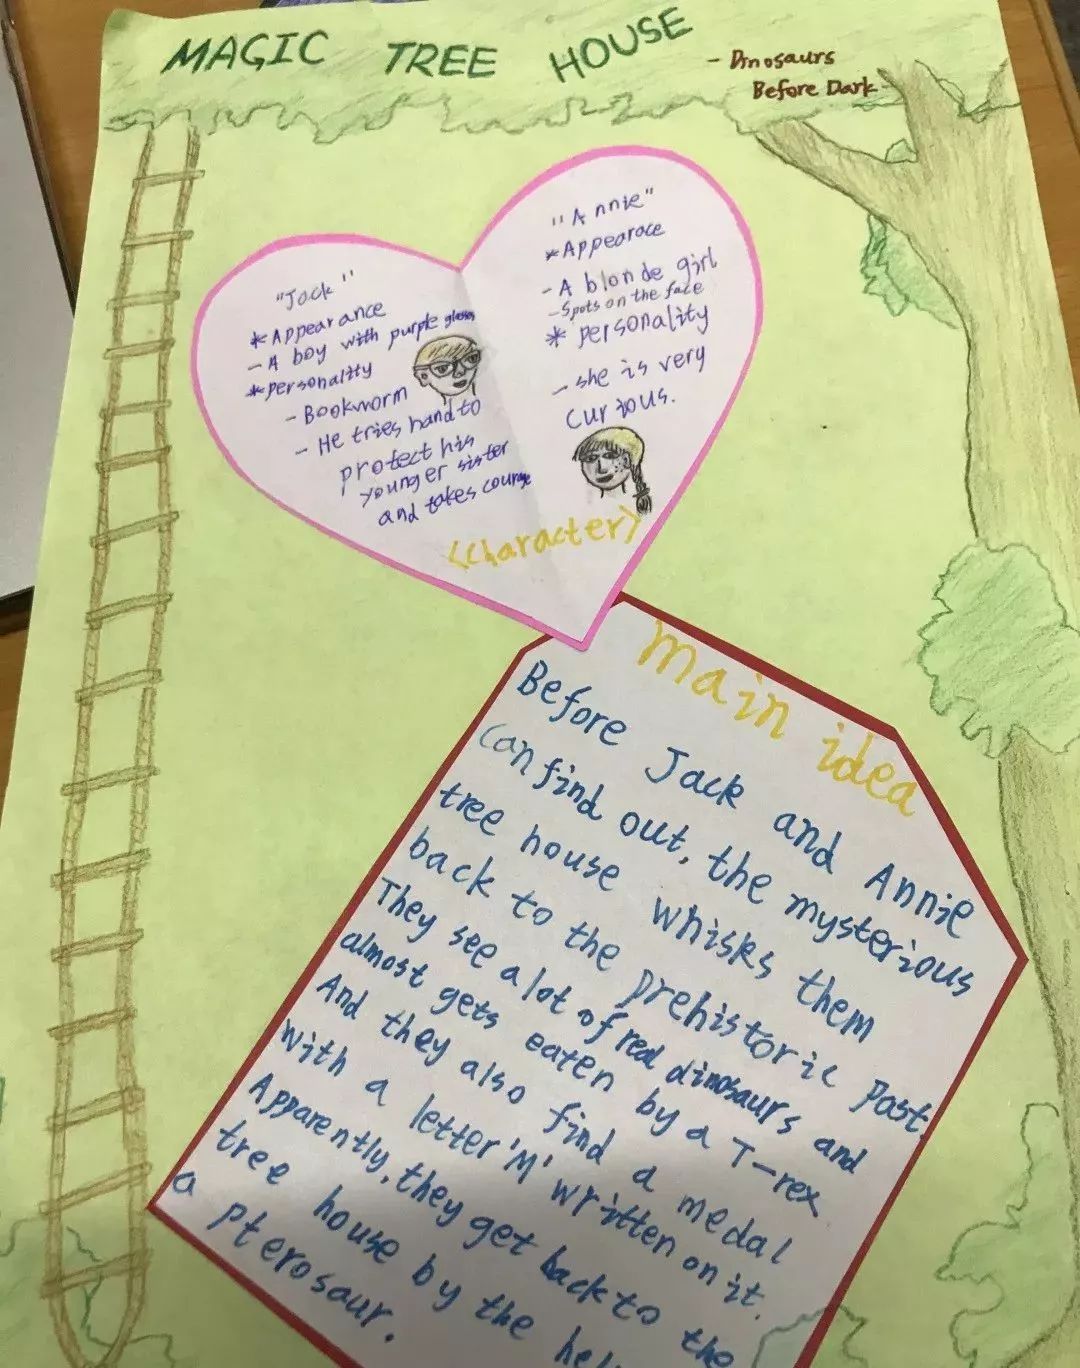 MAGIC TREE HOUSE
- Dinosaurs
Before Dark -
"Jack"
* Appearance
- A boy with purple glasses
* personality
- Bookworm
- He tries hand to
protect his
younger sister
and takes courage
"Annie"
* Appearace
- A blonde girl
- Spots on the face
* personality
- she is very
curious.
<Character>
main idea
Before Jack and Annie
can find out, the mysterious
tree house whisks them
back to the prehistoric past.
They see a lot of real dinosaurs and
almost gets eaten by a T-rex
And they also find a medal
with a letter 'M' written on it.
Apparently, they get back to the
tree house by the
a pterosaur.